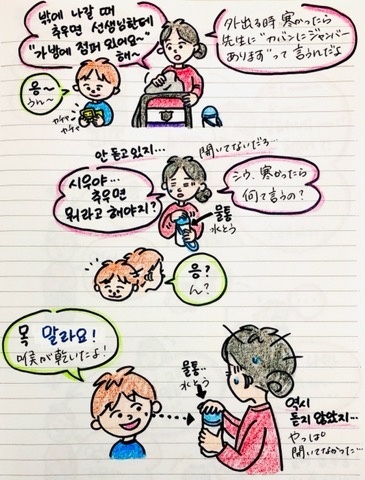 밖에 나갈 때
추우면 선생님한테
"가방에 점퍼 있어요~"
해~
外出る時 寒かったら
先生に"カバンにジャンバー
あります"って 言うんだよ
응~
うん~
カチャ
カチャ
안 듣고 있지…
聞いてないだろ…
시우야…
추우면
뭐라고 해야지?
シウ、寒かったら
何て言うの?
물통
水とう
응?
ん?
목 말라요!
喉が乾いたよ!
물통…
水とう
역시
듣지 않았지…
やっぱ
聞いてなかった…